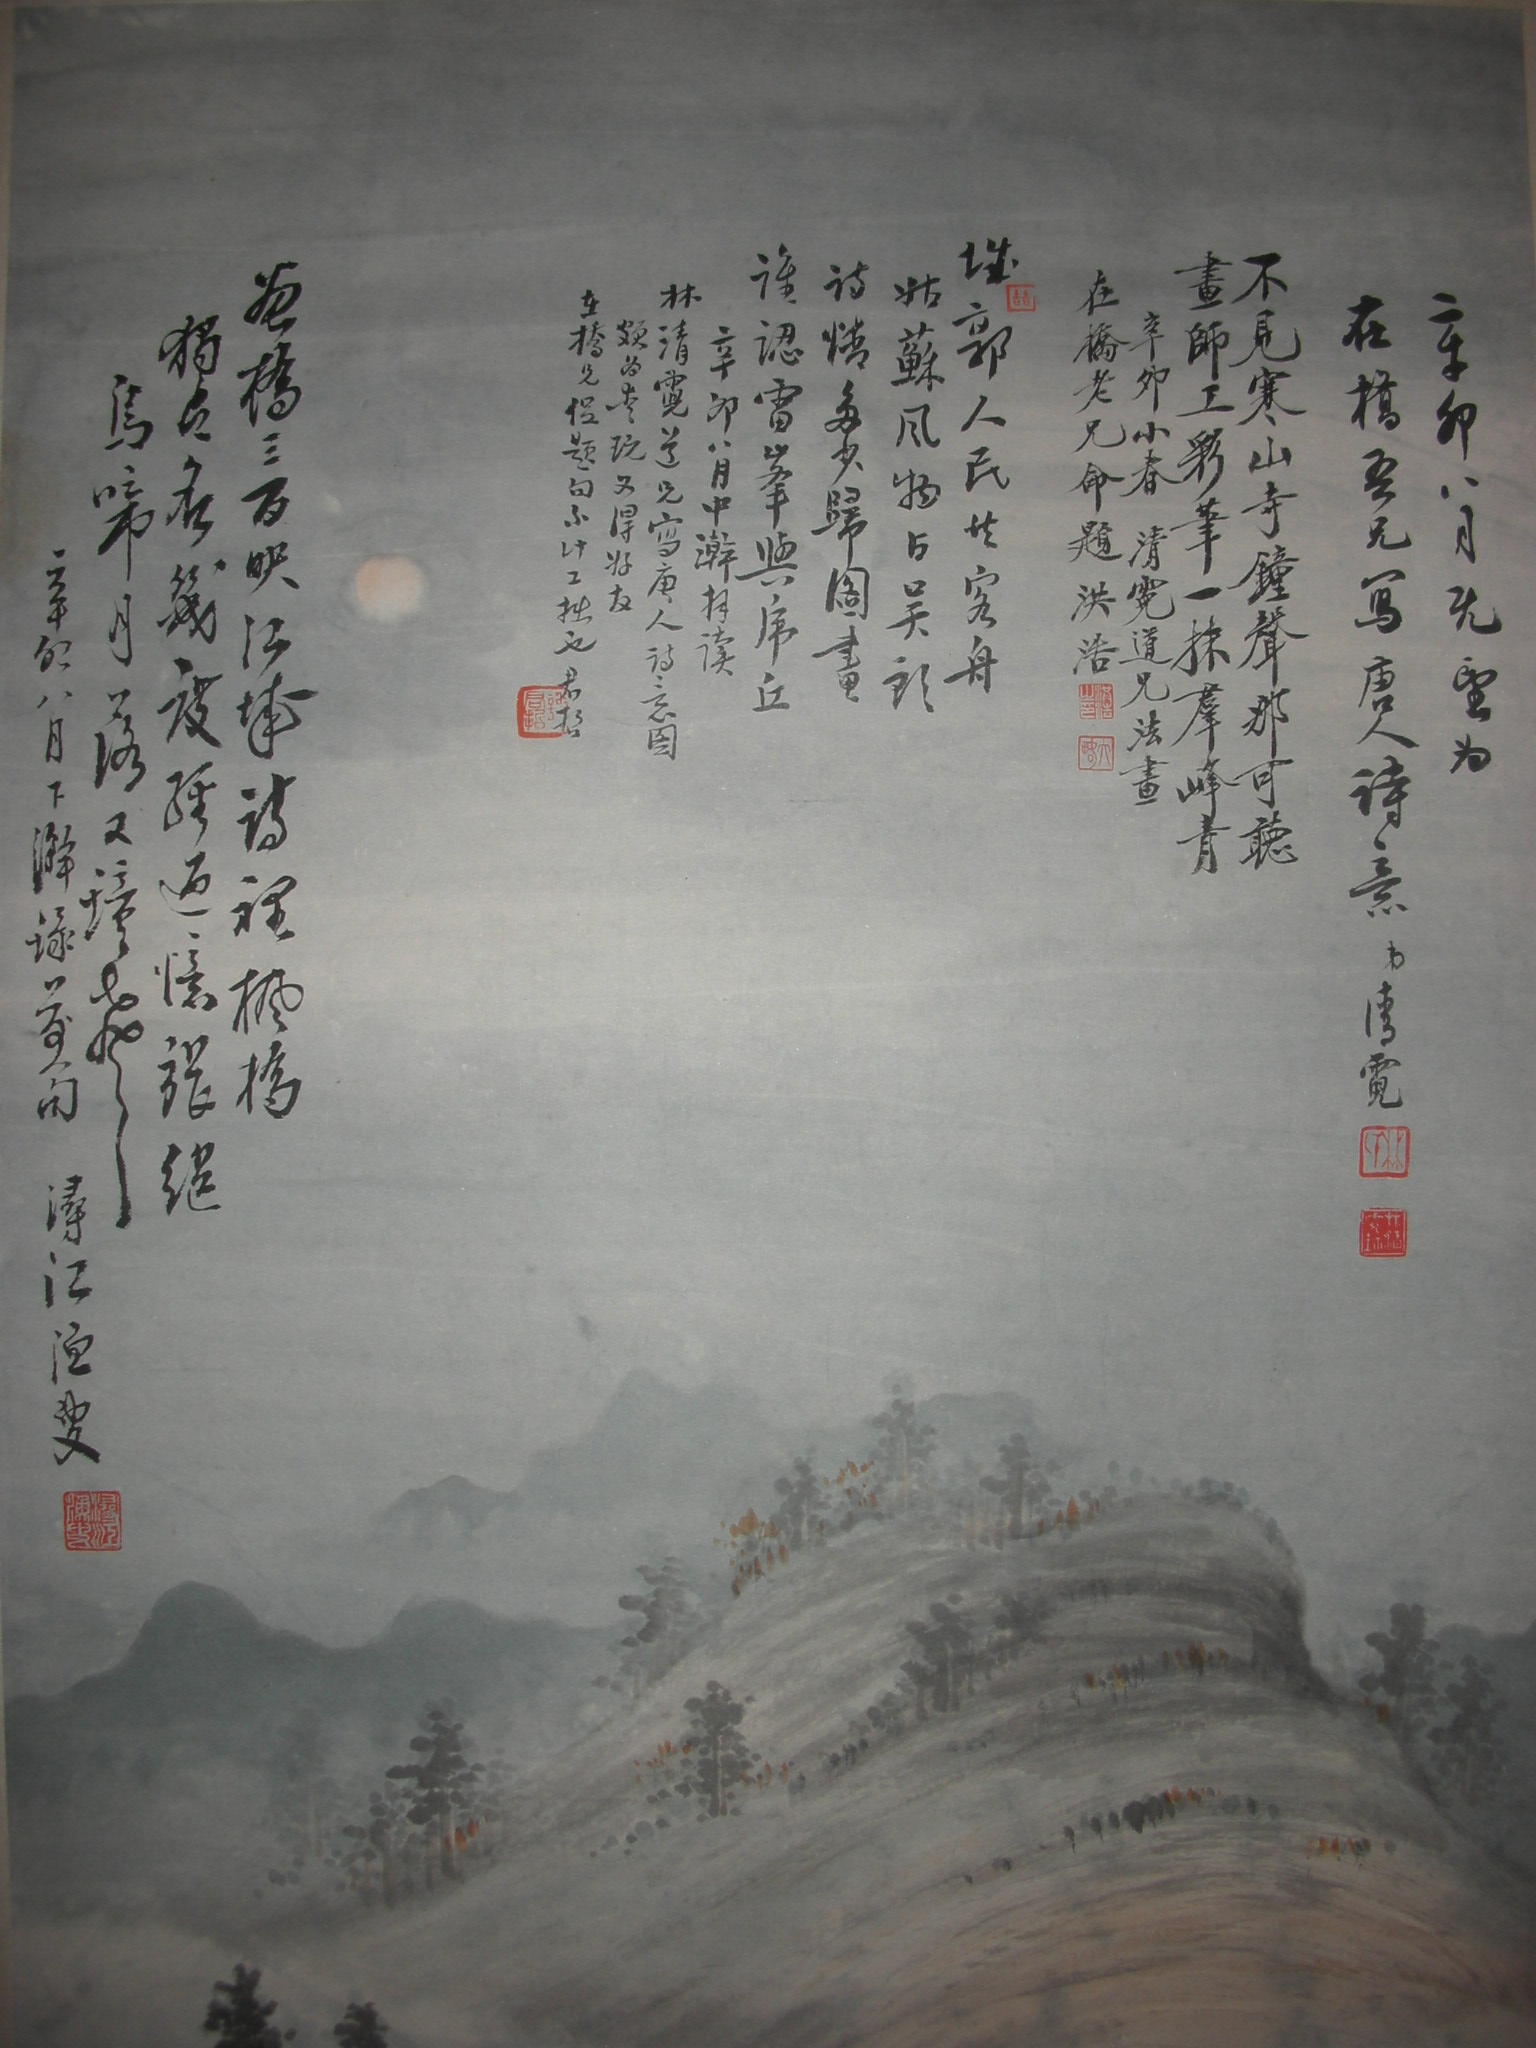 辛卯八月既望为
在橋吾兄写唐人詩意 弟清霓
不見寒山寺鐘聲那可聽
畫師工彩筆一抹羣峰青
辛卯小春 清霓道兄法畫
在橋老兄命題 洪浩
城郭人民共客舟
姑蘇風物占吴
詩情多少歸圖畫
誰認雷峯與虎丘
辛卯八月中澣拜读
林清霓道兄寫唐人诗意图
頗为

在橋兄促題句不计工拙也 君哲
畫橋三百映江城詩裡楓橋
獨占名幾度經過憶張繼
烏啼月落又鐘聲
辛卯八月下澣録前句 潯江漁叟
潯江漁叟